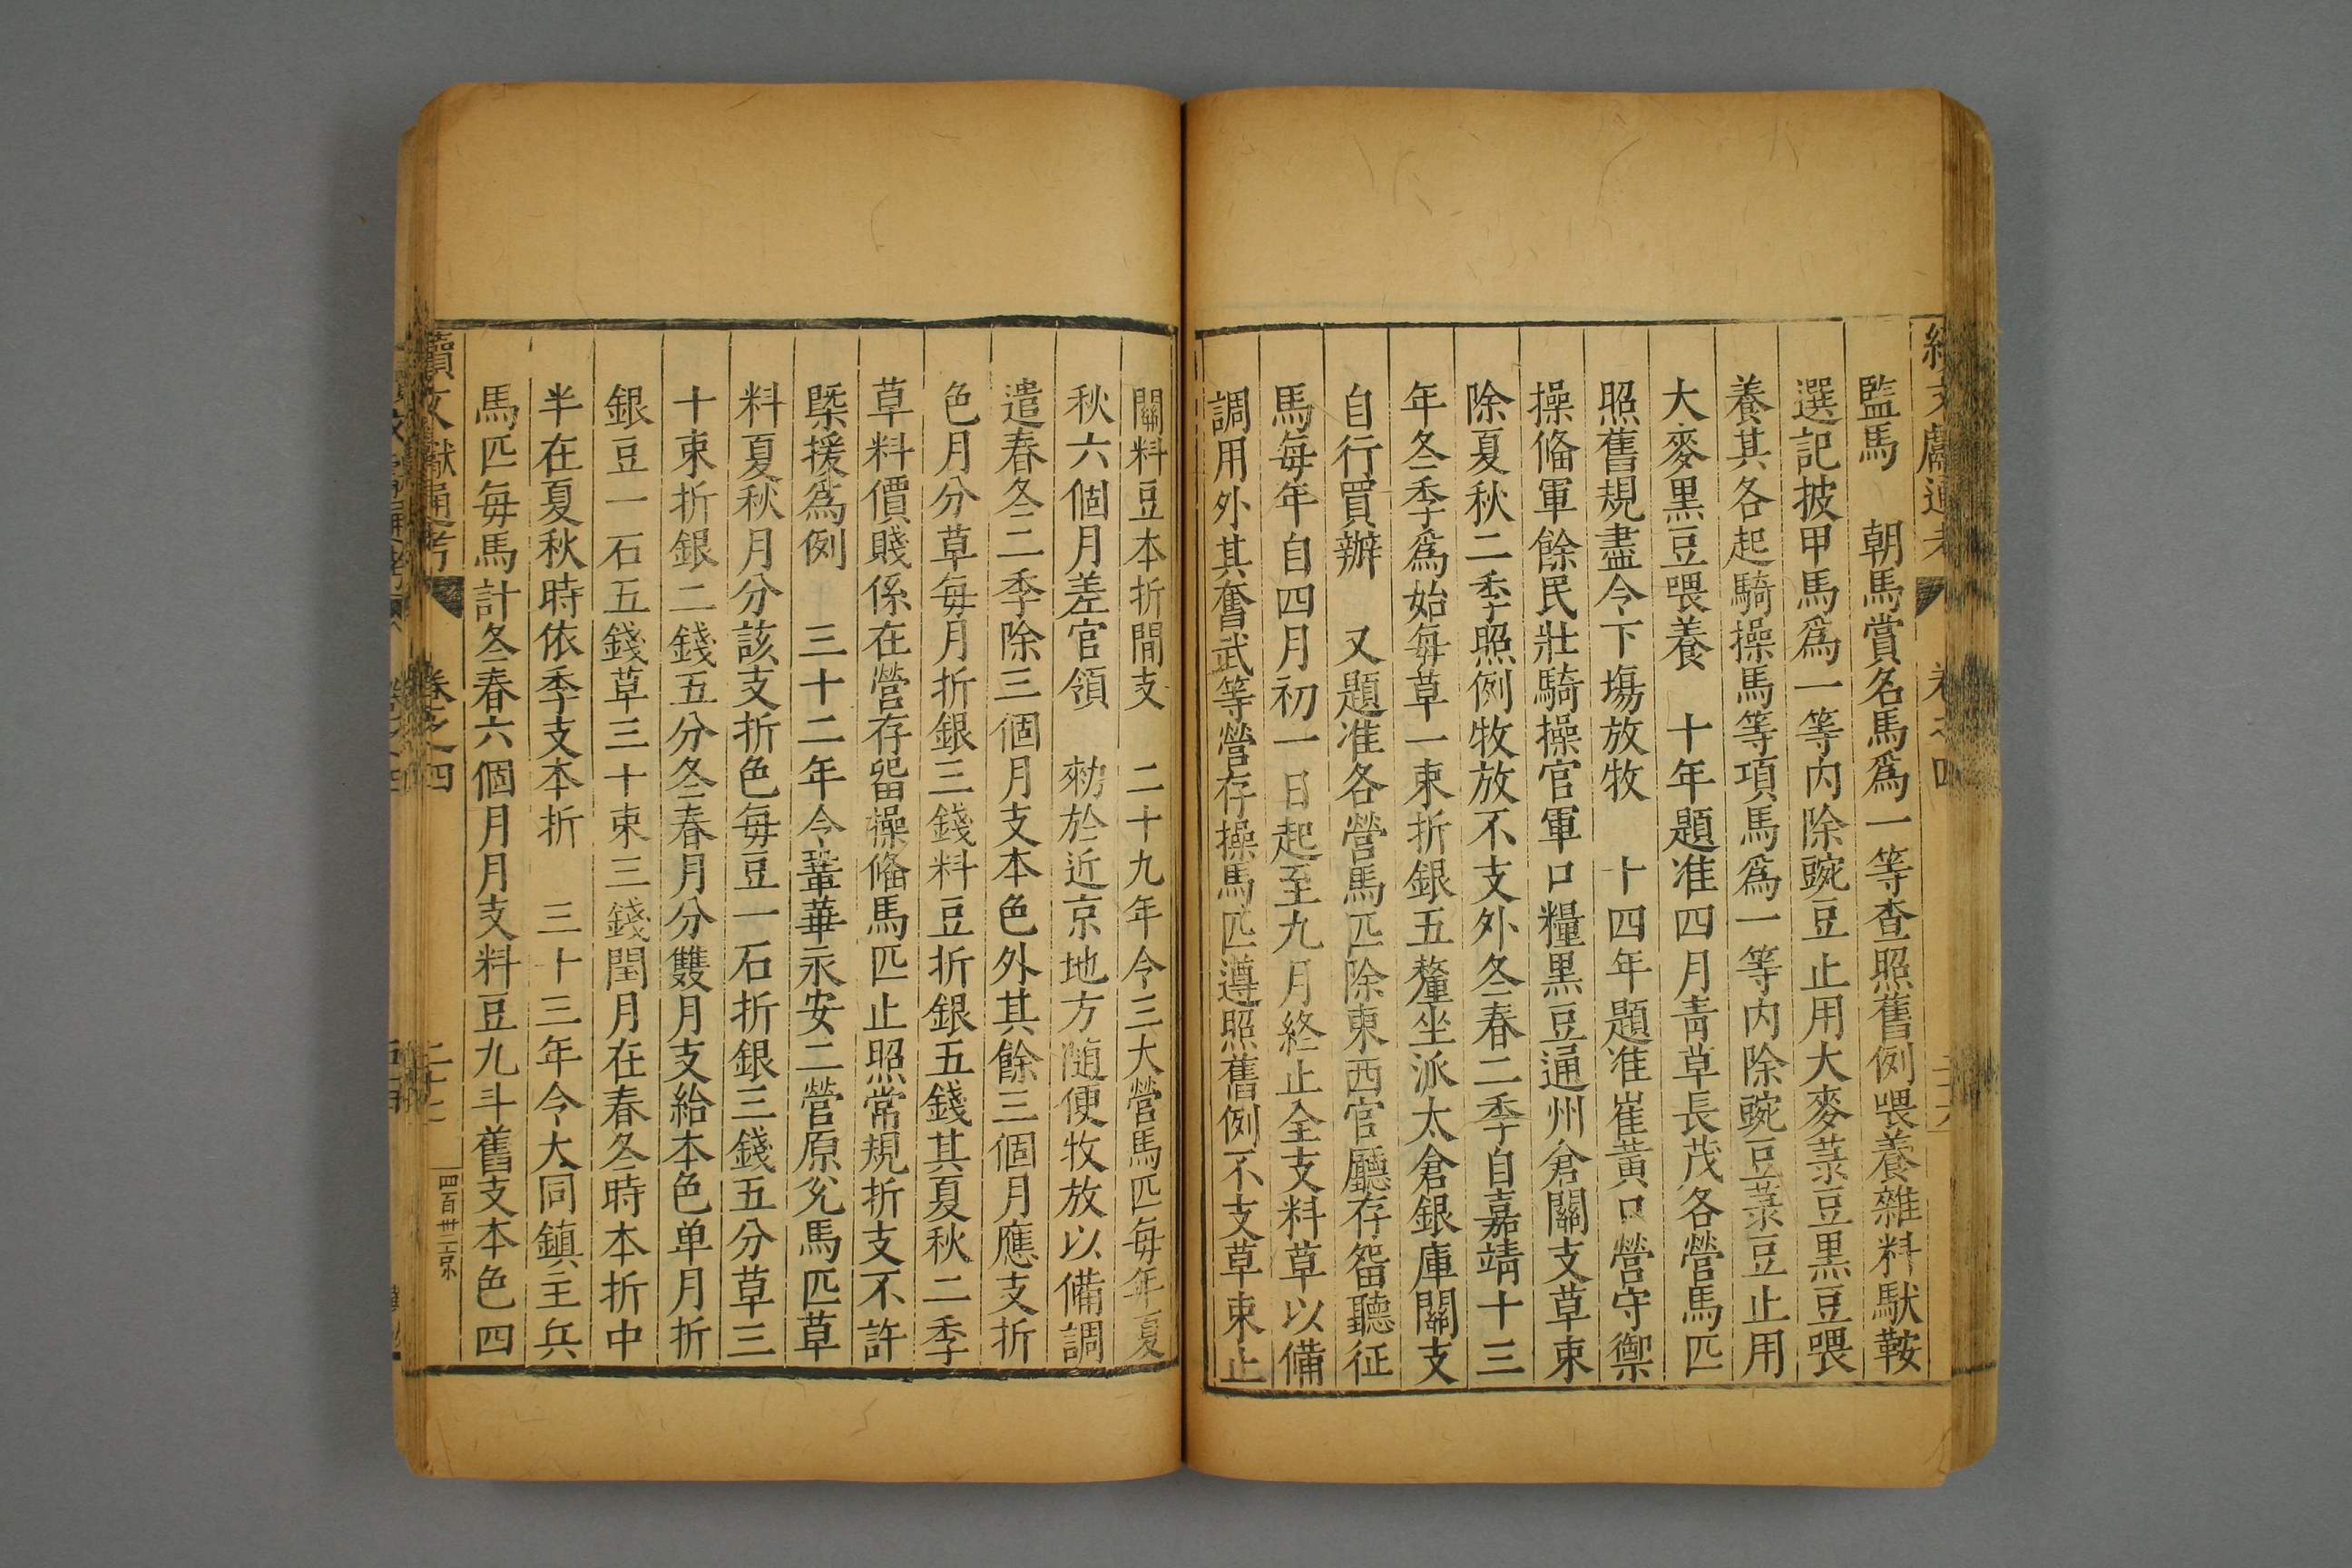 監馬　朝馬賞名馬爲一等查照舊例喂養雜料馱鞍
選記披甲馬爲一等内除豌豆止用大麥菉豆黑豆喂
養其各起騎操馬等項馬爲一等内除豌豆菉豆止用
大麥黑豆喂養　十年題准四月青草長茂各營馬匹
照舊規盡令下塲放牧　十四年題准崔黄口營守禦
操俻軍餘民壯騎操官軍口糧黑豆通州倉關支草束
除夏秋二季照例牧放不支外冬春二季自嘉靖十三
年冬季爲始每草一束折銀五釐坐派太倉銀庫關支
自行買辦　又題准各營馬匹除東西官廳存畱聽征
馬每年自四月初一日起至九月終止全支料草以備
調用外其奮武等營存操馬匹遵照舊例不支草束止
關料豆本折間支　二十九年令三大營馬匹每年夏
秋六個月差官領　勑於近京地方隨便牧放以備調
遣春冬二季除三個月支本色外其餘三個月應支折
色月分草每月折銀三錢料豆折銀五錢其夏秋二季
草料價賤係在營存畱操俻馬匹止照常規折支不許
槩援爲例　三十二年令鞏華永安二營原兊馬匹草
料夏秋月分該支折色每豆一石折銀三錢五分草三
十束折銀二錢五分冬春月分雙月支給本色单月折
銀豆一石五錢草三十束三錢閏月在春冬時本折中
半在夏秋時依季支本折　三十三年令大同鎮主兵
馬匹每馬計冬春六個月月支料豆九斗舊支本色四
續文獻通考
卷之四
二十七
四百卅二京